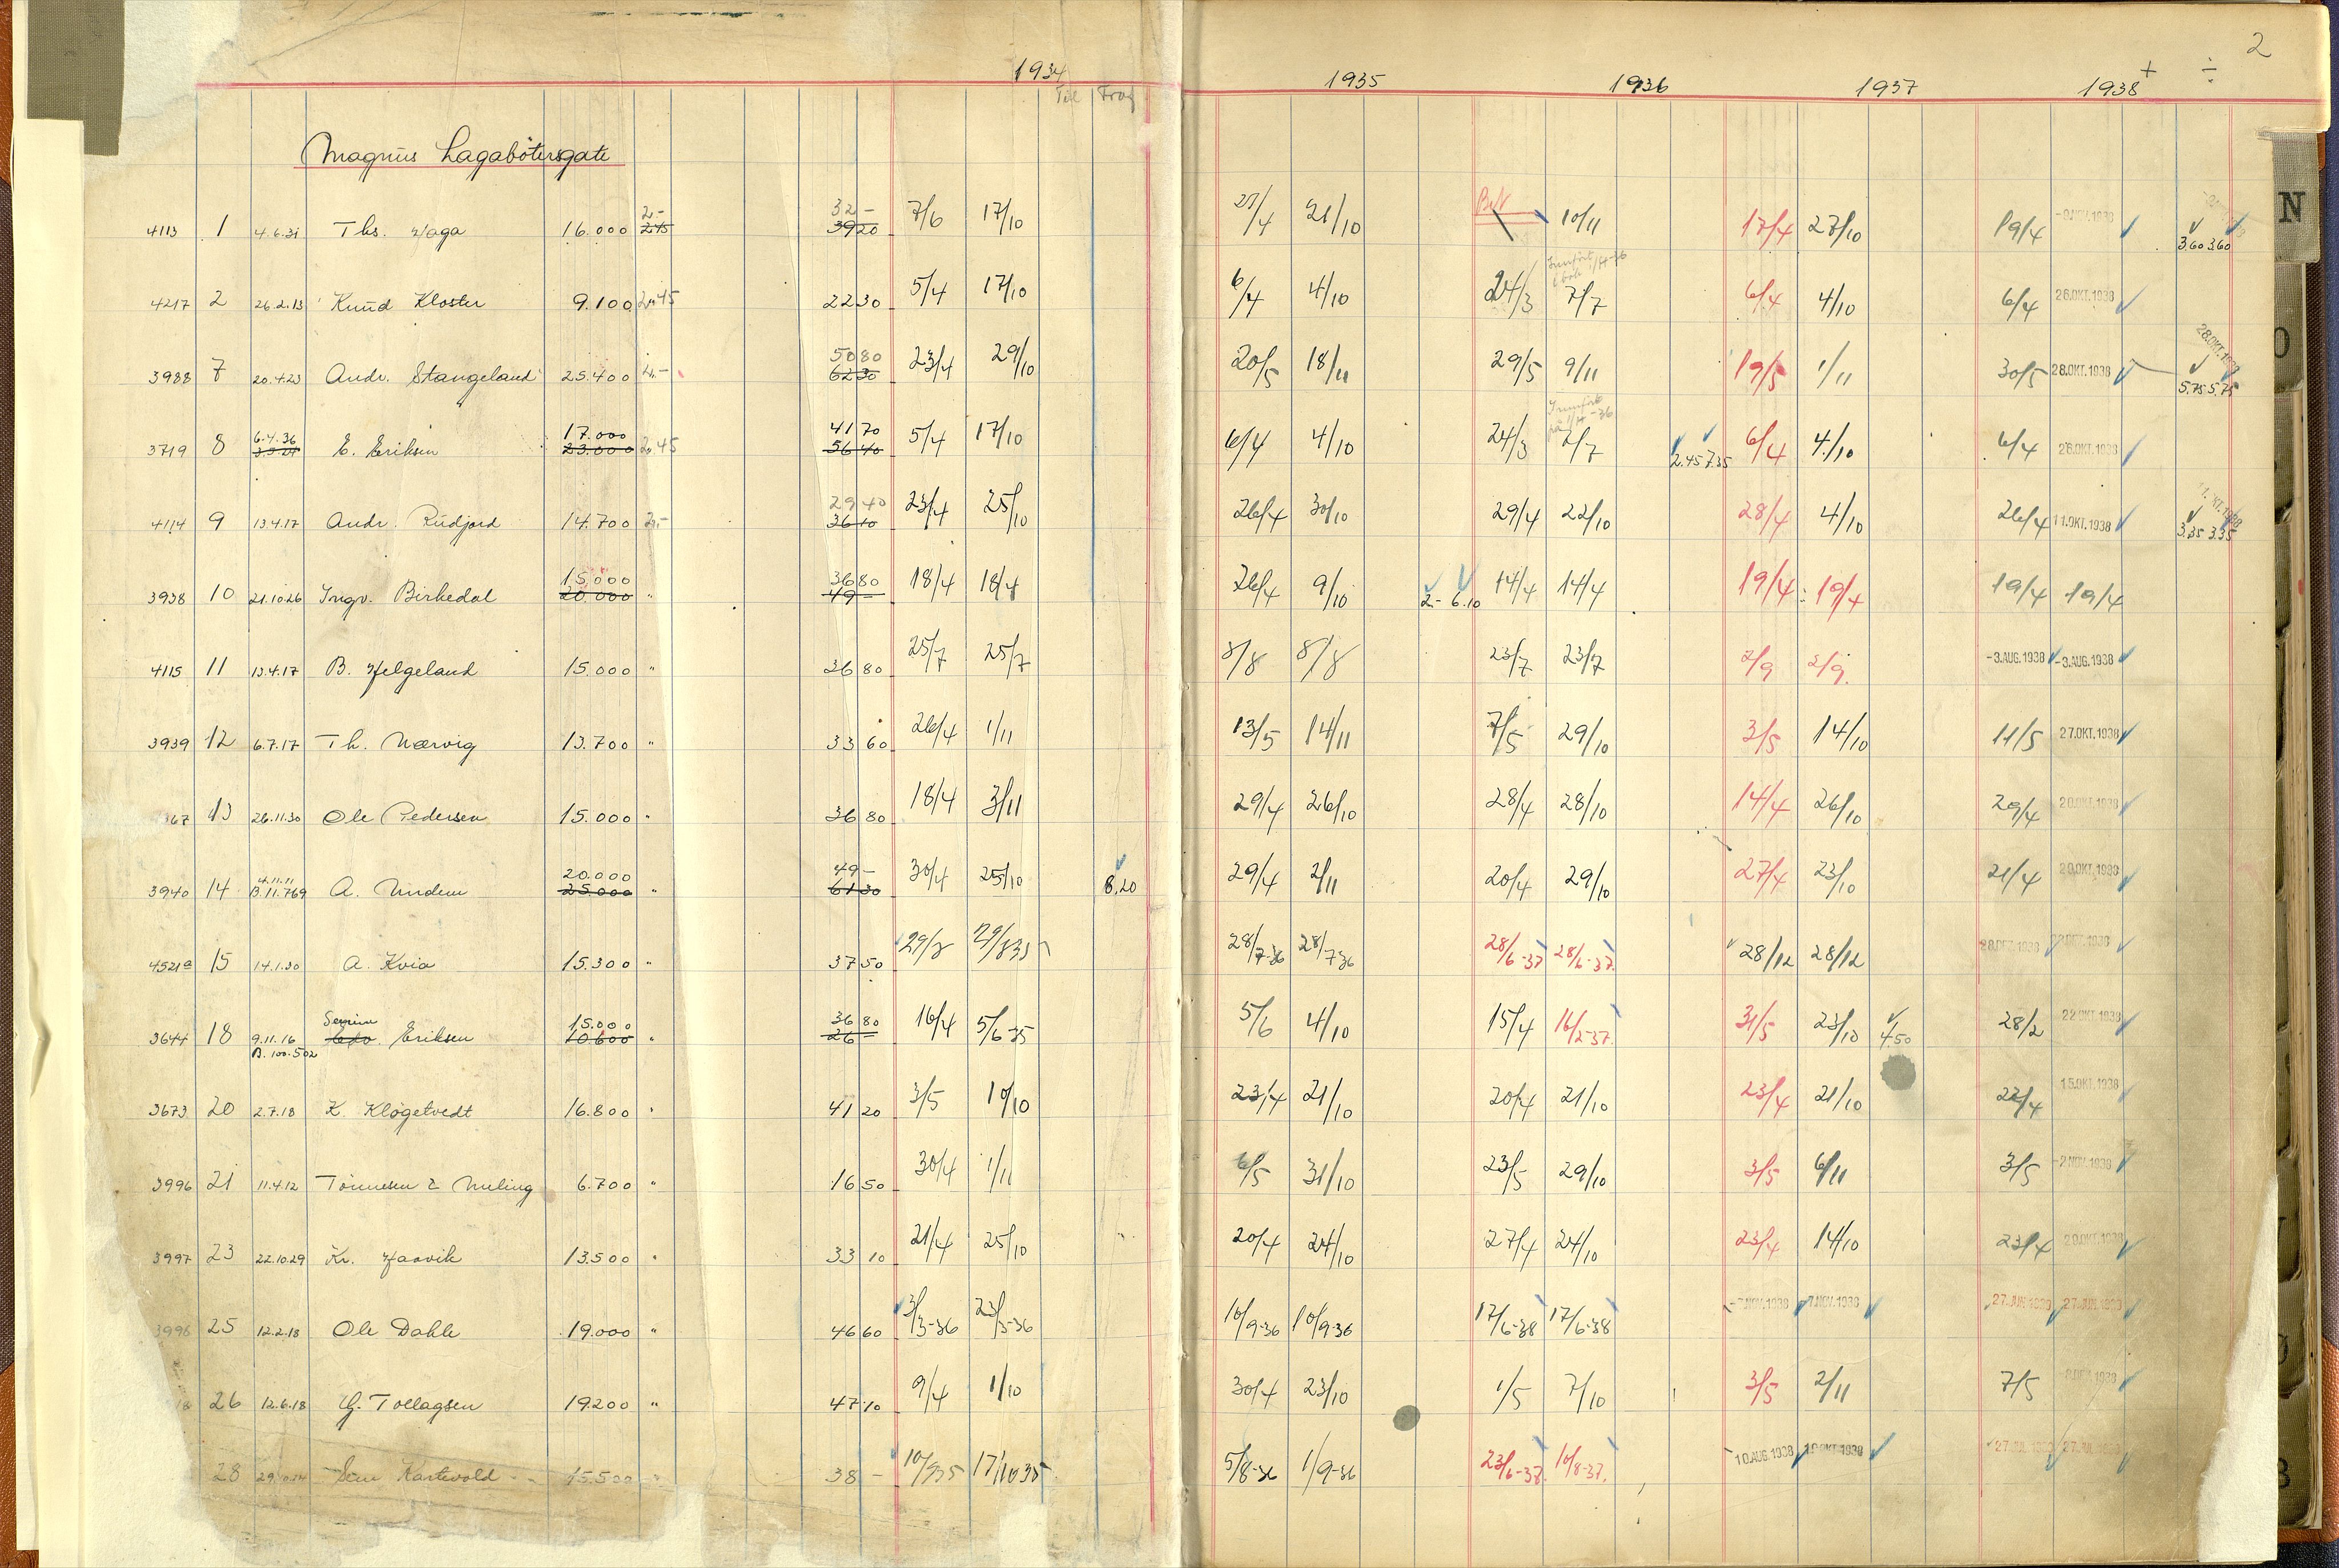 2
1934 1935 1936 1937 1938 + ÷
Til Frag
Magnus Lagabötersgate
2.- 32 -
4113 1 4.6.31 Ths. Haga 16.000 2.45 39 20 7/6 17/10 27/4 21/10 Bet 10/11 17/4 27/10 19/4 -9.NOV.1938 3.60 3.60
4217 2 26.2.13 Knud Kloster 9.100 2.45 22 30 5/4 17/10 6/4 4/10 24/3 7/7 6/4 4/10 6/4 26.OKT.1938
50 80 28.OKT.1938
3988 7 20.4.23 Andr. Stangeland 25.400 2.- 62 30 23/4 29/10 20/5 18/11 29/5 9/11 19/5 1/11 30/5 28.OKT.1938 5.75 5.75
6.4.36 17.000 41 70
3719 8 E. Eriksen 23.000 2.45 56 40 5/4 17/10 6/4 4/10 24/3 7/7 2.45 7.35 6/4 4/10 6/4 26.OKT.1938
29 40
4114 9 13.4.17 Andr. Rudjord 14.700 2.- 36 10 23/4 25/10 26/4 30/10 29/4 22/10 28/4 4/10 26/4 11.OKT.1938 3.35 3.35
15.000 36 80
3938 10 21.10.26 Ingv. Birkedal 20.000 " 49 - 18/4 18/4 26/4 9/10 2.- 6.10 14/4 14/4 19/4 19/4 19/4 19/4
4115 11 13.4.17 B. Helgeland 15.000 " 36 80 25/7 25/7 8/8 8/8 23/7 23/7 2/9 2/9 -3.AUG.1938 -3.AUG.1938
3939 12 6.7.17 Th. Nærvig 13.700 " 33 60 26/4 1/11 13/5 14/11 7/5 29/10 3/5 14/10 11/5 27.OKT.1938
367 13 26.11.30 Ole Pedersen 15.000 " 36 80 18/4 3/11 29/4 26/10 28/4 28/10 14/4 26/10 29/4 20.OKT.1938
4.11.11 20.000 49 -
3940 14 B.11.769 A. Undem 25.000 " 61 30 30/4 25/10 8.20 29/4 2/11 20/4 29/10 27/4 23/10 21/4 20.OKT.1938
4521a 15 14.1.30 A. Kvia 15.300 " 37 50 29/8 29/8 35 28/7-36 28/7-36 28/6-37 28/6-37. 28/12 28/12
Serine 15.000 36 80
3644 18 9.11.16 Eriksen 10.600 " 26 - 16/4 5/6-35 5/6 4/10 15/4 16/2-37. 31/5 23/10 4.50 28/2 22.OKT.1938
B. 100.502
3673 20 2.7.18 K. Kløgetvedt 16.800 " 41 20 3/5 10/10 23/4 21/10 20/4 21/10 23/4 21/10 22/4 15.OKT.1938
3996 21 11.4.12 Tönnesen & Meling 6.700 " 16 50 30/4 1/11 6/5 31/10 23/5 29/10 3/5 6/11 3/5 -2.NOV.1938
3997 23 22.10.29 Kr. Haavik 13.500 " 33 10 21/4 25/10 20/4 24/10 27/4 24/10 23/4 14/10 23/4 20.OKT.1938
3998 25 12.2.18 Ole Dahle 19.000 " 46 60 3/3-36 23/5-36 10/9-36 10/9-36 17/6-38 17/6-38 -7.NOV.1938 -7.NOV.1938 27.JUN.1939 27.JUN.1939
26 12.6.18 G. Tollagsen 19.200 " 47 10 9/4 1/10 30/4 23/10 1/5 7/10 3/5 2/11 7/5
28 Kartevold 15.500 " 38 - 10/9 35 17/10 35 5/8-36 1/9-36 23/6-37. 10/8-37. 10.AUG.1938 27.JUL.1939 27.JUL.1939
N